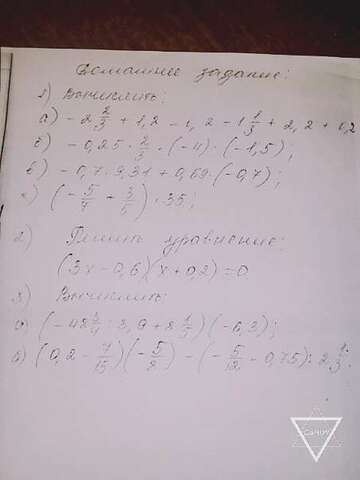 Домашнее задание:
1) Вычислить:
а) -2 2/3 + 1,2 - 1,2 - 1 1/3 + 2,2 + 0,2
б) - 0,25 · 2/3 · (-4) · (-1,5);
в) - 0,7 · 9,31 + 0,69 · (-0,7);
г) (- 5/7 + 3/5) · 35;
2) Решить уравнение:
(3x - 0,6)(x + 0,2) = 0
3) Вычислить:
а) (- 42 : 3,9 + 2 1/3)(-6,3);
б) (0,2 - 7/15)(- 5/2) - (- 5/12 - 0,75) : 2 1/3.